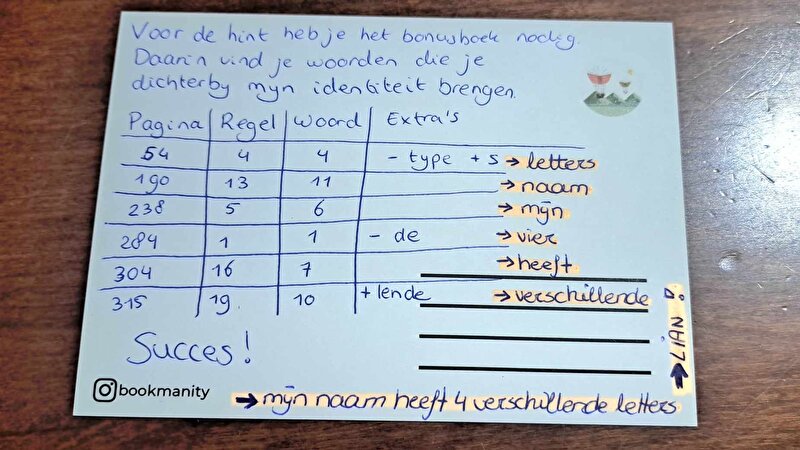 Voor de hint heb je het bonusboek nodig.
Daarin vind je woorden die je
dichterby mijn identiteit brengen.
Pagina Regel Woord Extra's
54 4 4 - type + s → letters
190 13 11 → naam
238 5 6 → mijn
284 1 1 - de → vier
304 16 7 → heeft
315 19 10 + lende → verschillende
Succes!
bookmanity
→ mijn naam heeft 4 verschillende letters
→ LIAN